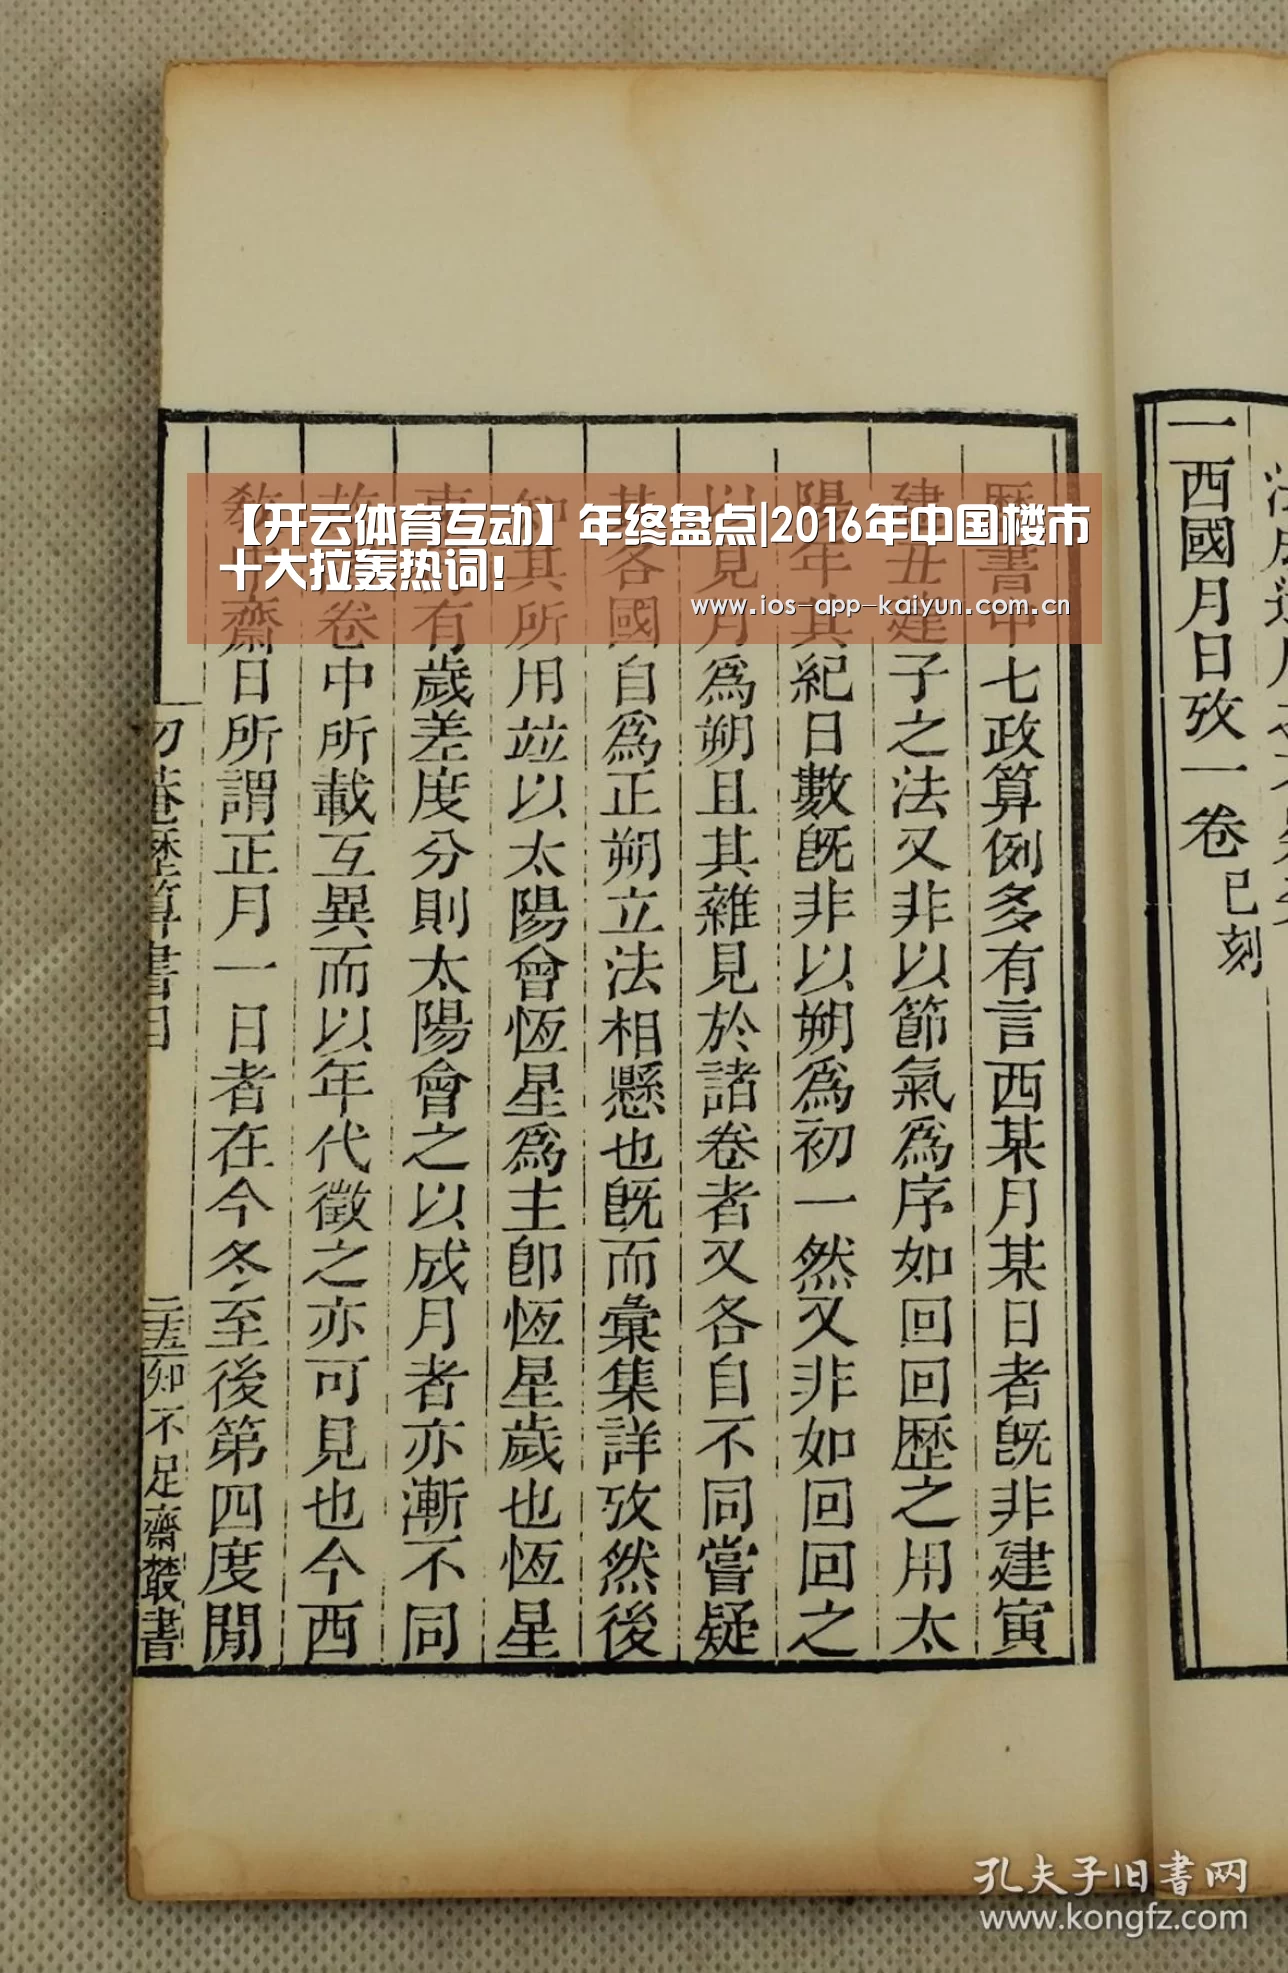 一西國月日攷一卷已刻
曆書中七政算例多有言西某月某日者旣非建寅
建丑建子之法又非以節氣爲序如回回歷之用太
陽年其紀日數旣非以朔爲初一然又非如回回之
以見月爲朔且其雜見於諸卷者又各自不同嘗疑
其各國自爲正朔立法相懸也旣而彙集詳攷然後
知其所用竝以太陽會恆星爲主卽恆星歲也恆星
有歲差度分則太陽會之以成月者亦漸不同
故卷中所載互異而以年代徵之亦可見也今西
齋日所謂正月一日者在今冬至後第四度閒
勿菴歷算書目
二十五
知不足齋叢書
【开云体育互动】年终盘点|2016年中国楼市
十大拉轰热词！
www.ios-app-kaiyun.com.cn
孔夫子旧书网
www.kongfz.com